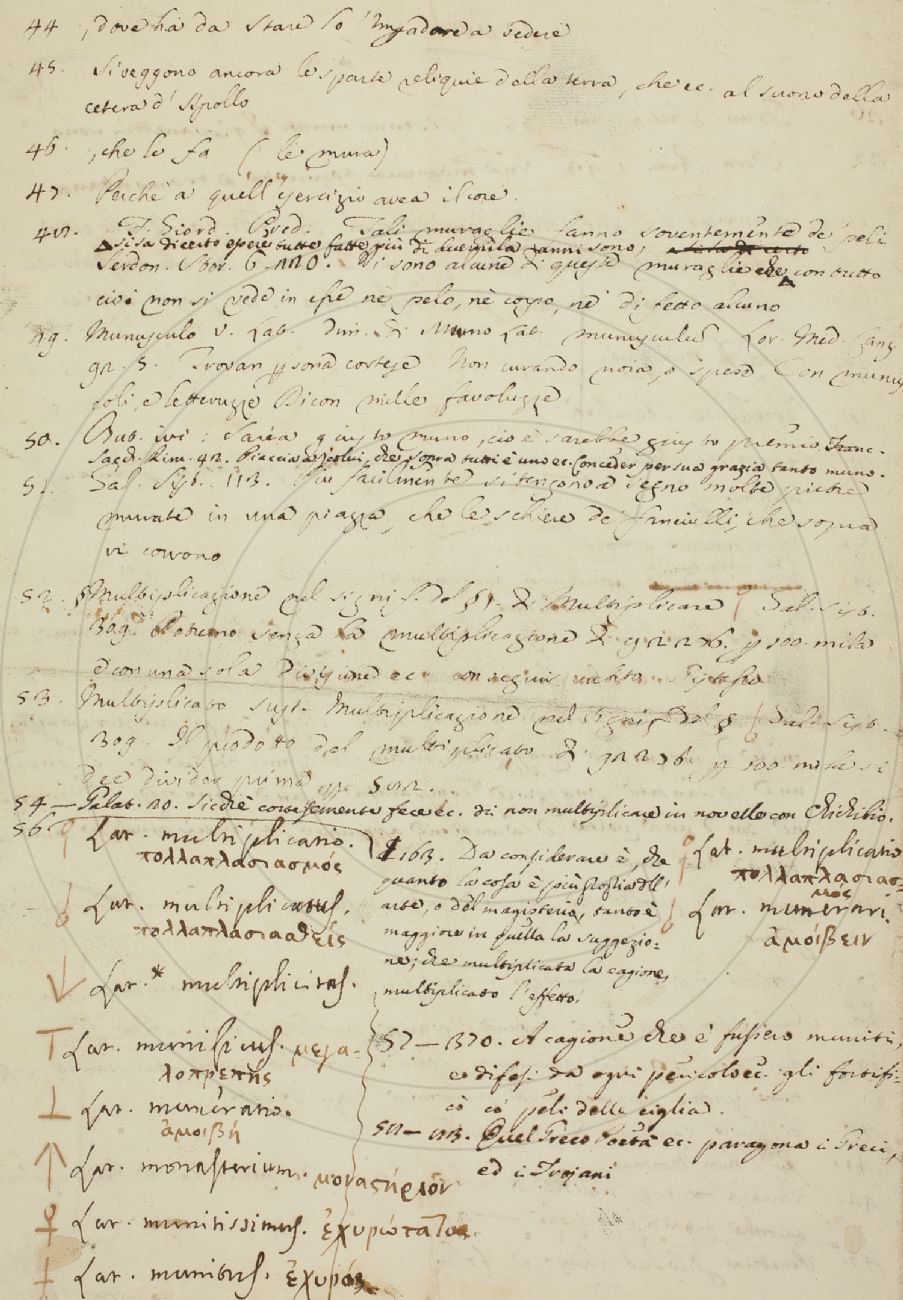 44 ; dove ha da stare lo a vedere
45. si veggono ancora le sparte reliquie della terra, che ec. al suono della
cetera d'Apollo
46. ; che le fa (le mura)
47. Perchè a quell'esercizio avea il core.
48. F. Giord. Pred. Tali muraglie fanno soventemente de' peli
si sa di certo essere tutte fatte più di anni sono,
Serdon. Stor. 6. 220. Vi sono alcune di queste muraglie che con tutto
ciò non si vede in esse nè pelo, nè corpo, nè di fetto alcuno
49. Munusculo v. Lat. Dim. di Muno Lat. munusculum Lor. Med. canz
92. 5. Trovan persona cortese Non curando noia, o spese Con munus
coli, e letteruzze Dicon mille favoluzze
50. But. ivi: Saria giusto muno, cioè sarebbe giusto premio Franc.
Sacch. Rim. 42. Piaccia a colui, che sopra tutti è uno ec. Conceder per sua grazia tanto muno.
51. Sal. 113. Più facilmente si tengono a segno molte pietre
murate in una piazza, che le schiere de' fanciulli, che sopra
vi corrono
52. Multiplicazione nel signif. del §. di Multiplicare Gal. Sist.
309. Potremo senza la multiplicazione di 92276. per 100. mila
e con una sola divisione ec. conseguir
53. Multiplicato sust. Multiplicazione nel signif. del § Gal. Sist.
309. Il prodotto del multiplicato di 92276 per 100. mila si
dee divider prima per 582.
54 — Galat. 20. Siccome cortesemente fece ec. di non multiplicare in novelle con Chichibio.
56 Lat. multiplicatio.
πολλαπλασιασμός
Lat. multiplicatus.
πολλαπλασιασθείς
Lat.* multiplicitas.
Lat. munificus. μεγα-
λοπρεπης
Lat. muneratio.
ἀμοιβή
Lat. monasterium. μοναςήριον
Lat. munitissimus. ἐχυρώτατος
Lat. munitus. ἐχυρός
163. Da considerare è, che
quanto la cosa è più dell'
arte, o del magisterio, tanto è
maggiore in quella la suggezio-
ne; che multiplicata la cagione,
multiplicato l'effetto.
57 — 370. A cagione che è fussero muniti,
e difesi da ogni pericolo ec. gli fortifi-
cò co' peli delle ciglia.
58 — 113. Quel Greco Poeta ec. paragona i Greci,
ed i Trojani
Lat. multiplicatio
πολλαπλασιασ-
μός
Lat. munerari.
ἀμοίβειν